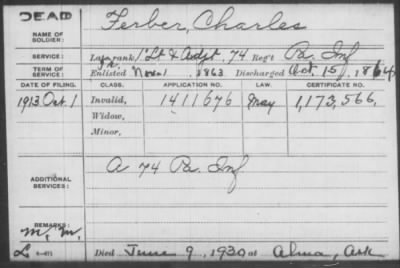 DEAD
NAME OF SOLDIER: Ferber, Charles
SERVICE: Late rank, 1' Lt & Adjt, 74 Reg't Pa. Inf
TERM OF SERVICE: Enlisted Nov. 1 1863 Discharged Oct. 15, 1864
DATE OF FILING. CLASS. APPLICATION NO. LAW. CERTIFICATE NO.
1913 Oct. 1 Invalid, 1411676 May 1,173,566,
Widow,
Minor,
ADDITIONAL SERVICES: A 74 Pa. Inf
REMARKS:
M. M.
L
Died June 9, 1930 at Alma, Ark